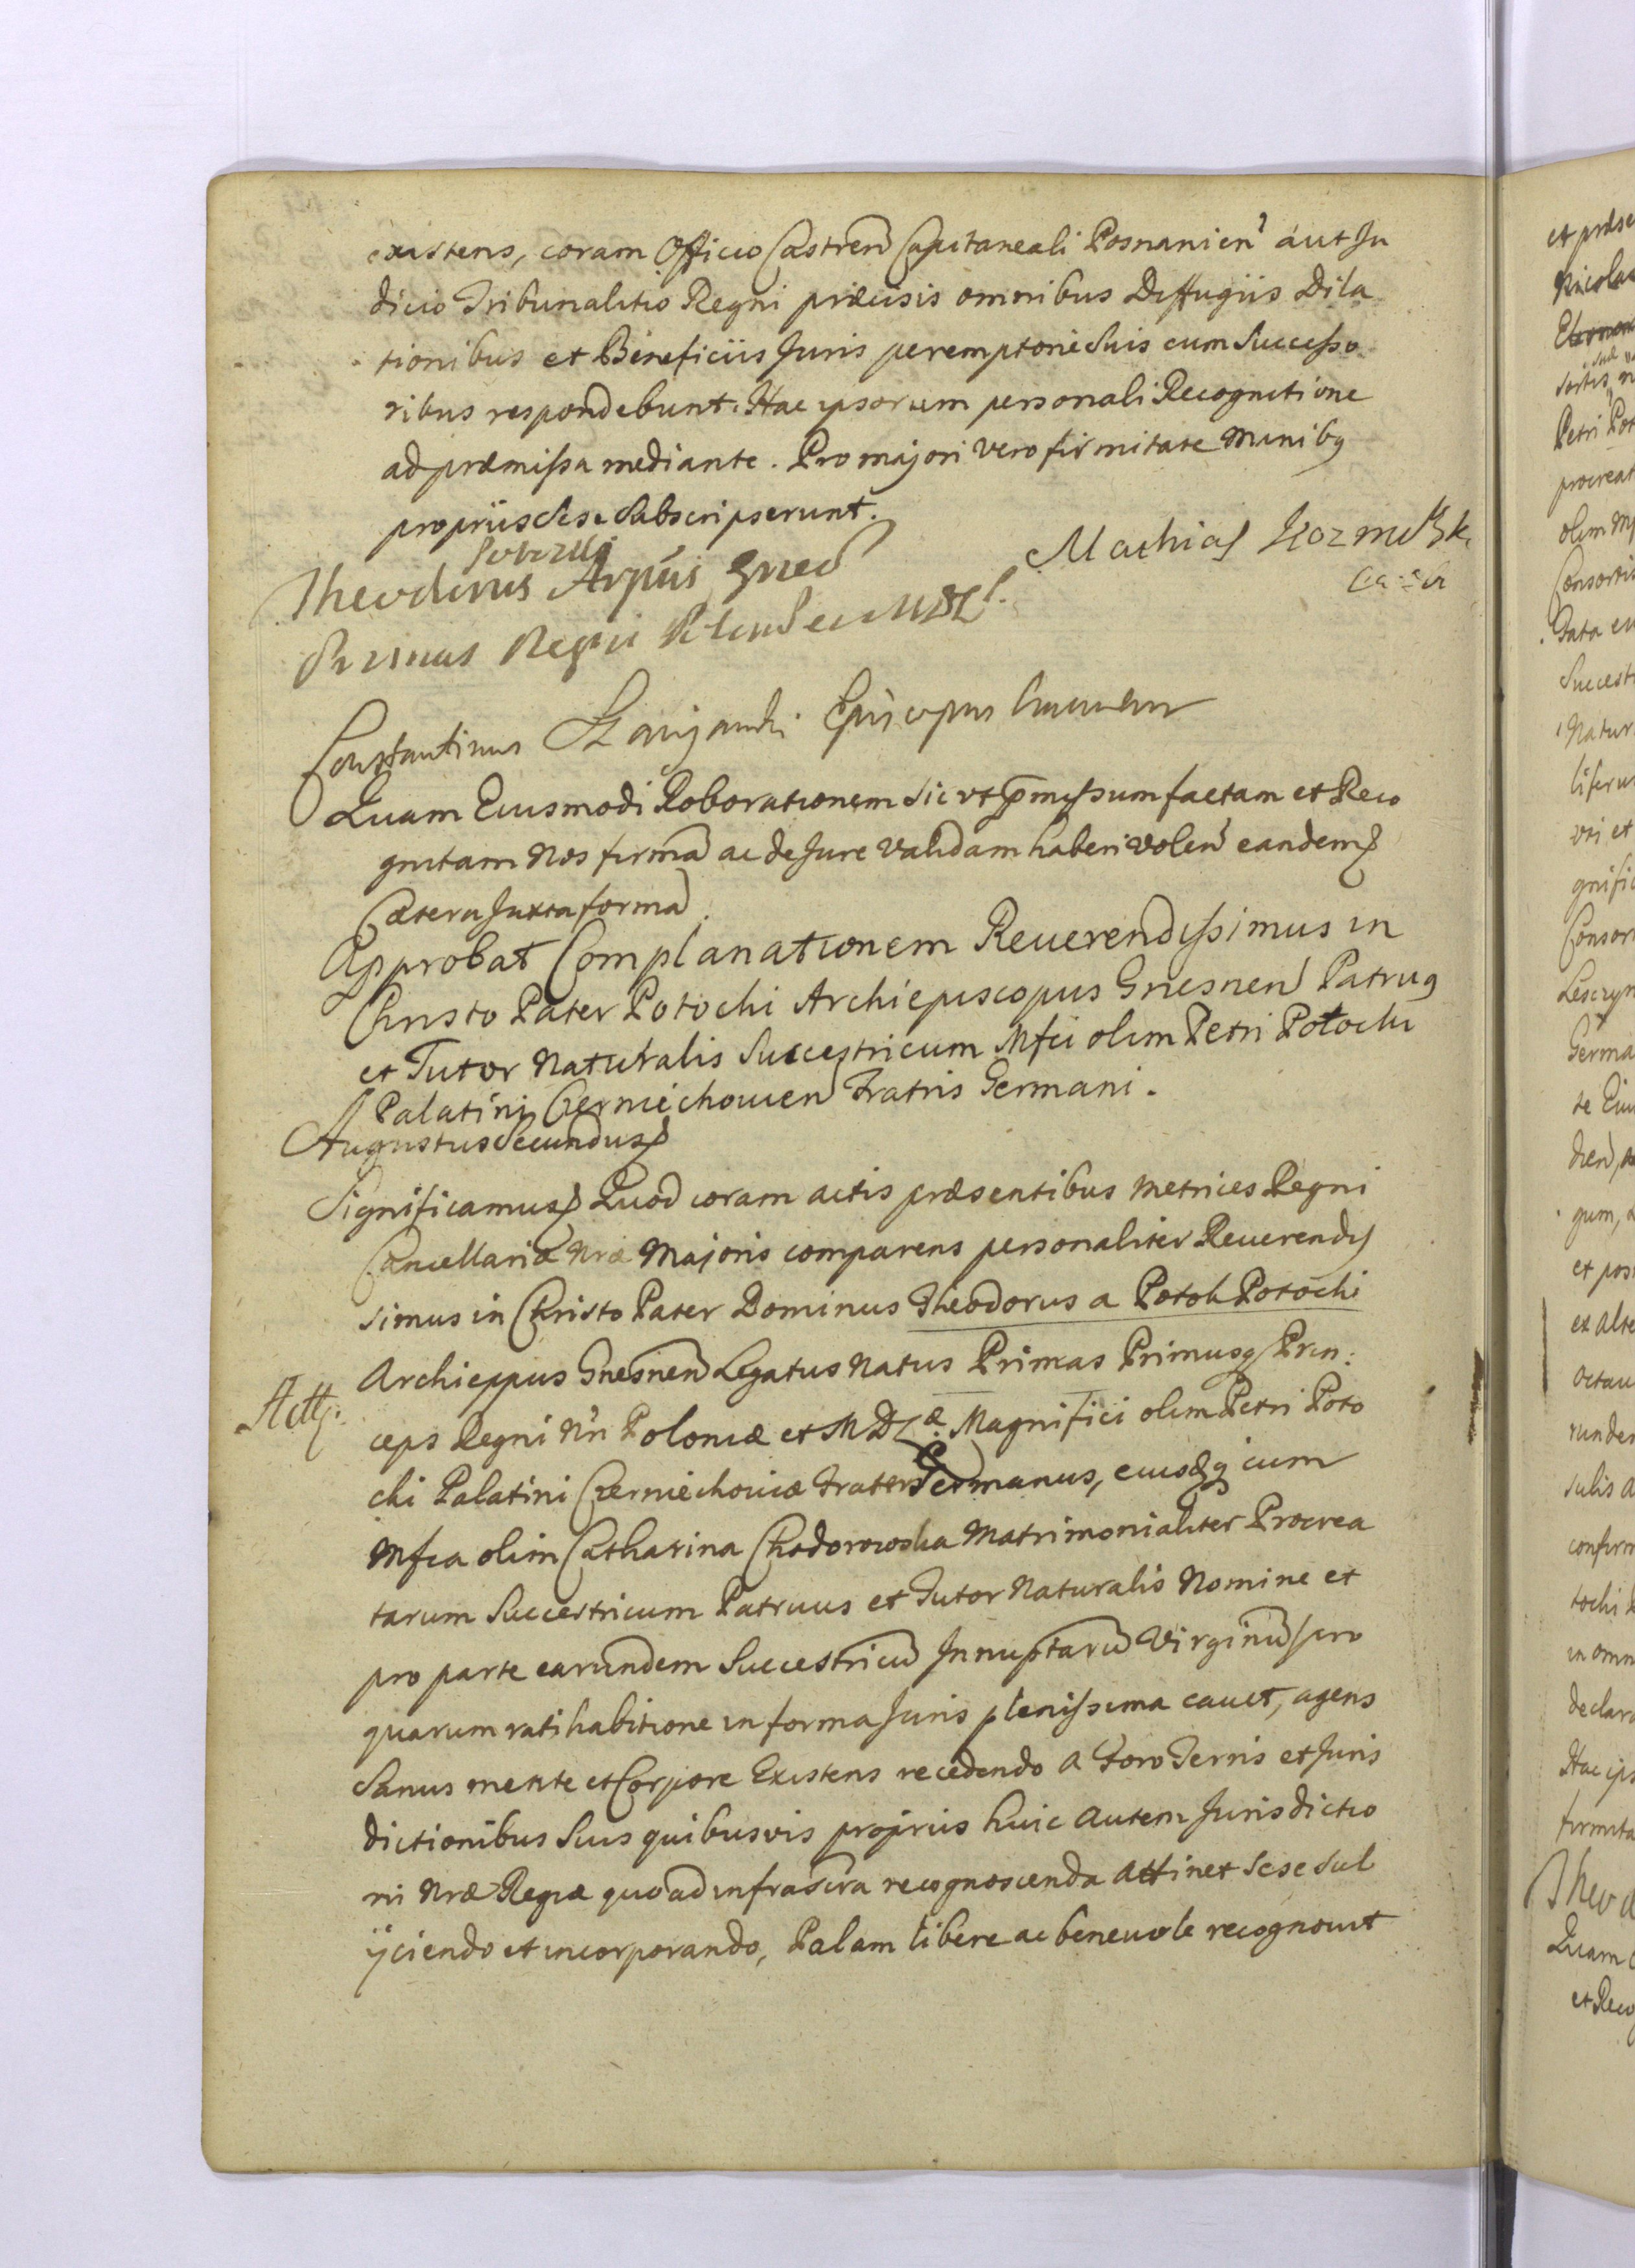 existens, coram Officio Castren Capitaneali Posnanien aut Ju
dicio Tribunalitio Regni præcisis omnibus Diffugiis Dila
tionibus et Beneficiis Juris peremptorie suis cum Successo
ribus respondebunt. Hac ipsorum personali Recognitione
ad præmissa mediante. Pro majori vero firmitate Manibq
propriis sese subscripserunt.
Potozki
Theodorus Arpus Gned
Mathias
Primas Regni
Constantinus Episcopus
Quam Eiusmodi Roborationem sic vt pmissum factam et Reco
gnitam Nos firma ac de Jure validam haberi volen eandem
Cætera Juxta forma
Approbat Complanationem Reuerendissimus in
Christo Pater Potochi Archiepiscopus Gnesnen Patruq
et Tutor Naturalis Succestricum Mfci olim Petri Potochi
Palatini Czerniechouien Fratris Germani.
Augustus Secundus
Significamus Quod coram actis præsentibus Metrices Regni
Cancellariæ Nræ Majoris comparens personaliter Reuerendis
simus in Christo Pater Dominus Theodorus a Potok Potochi
Archieppus Gnesnen Legatus Natus Primas Primusq Prin:
ceps Regni Nri Poloniæ et M D L æ. Magnifici olim Petri Poto
chi Palatini Czerniechouiæ Frater Germanus, eiusdq cum
Mfca olim Catharina Chodorowska Matrimonialiter Procrea
tarum Succestricum Patruus et Tutor Naturalis Nomine et
pro parte earundem Succestricu Innuptaru Virginu pro
quarum ratihabitione in forma Juris plenissima cauet, agens
Sanus mente et Corpore Existens recedendo a Foro Terris et Juris
dictionibus Suis quibusvis propriis huic autem Jurisdictio
ni Nræ Regiæ quo ad infrascra recognoscenda attinet sese sub
ÿciendo et incorporando, Palam libere ac beneuole recognouit
et præse
Nicolas
Petri Pot
procreat
olim Mf
Consortis
Data
Succest
Natur
vri et
gnific
Consor
Leszczyn
Germa
te Eiu
gum,
et pos
ex alte
Octau
runder
sulis a
confirm
tochi
in omn
declara
Hac ips
firmita
Theod
Quam
et Reco